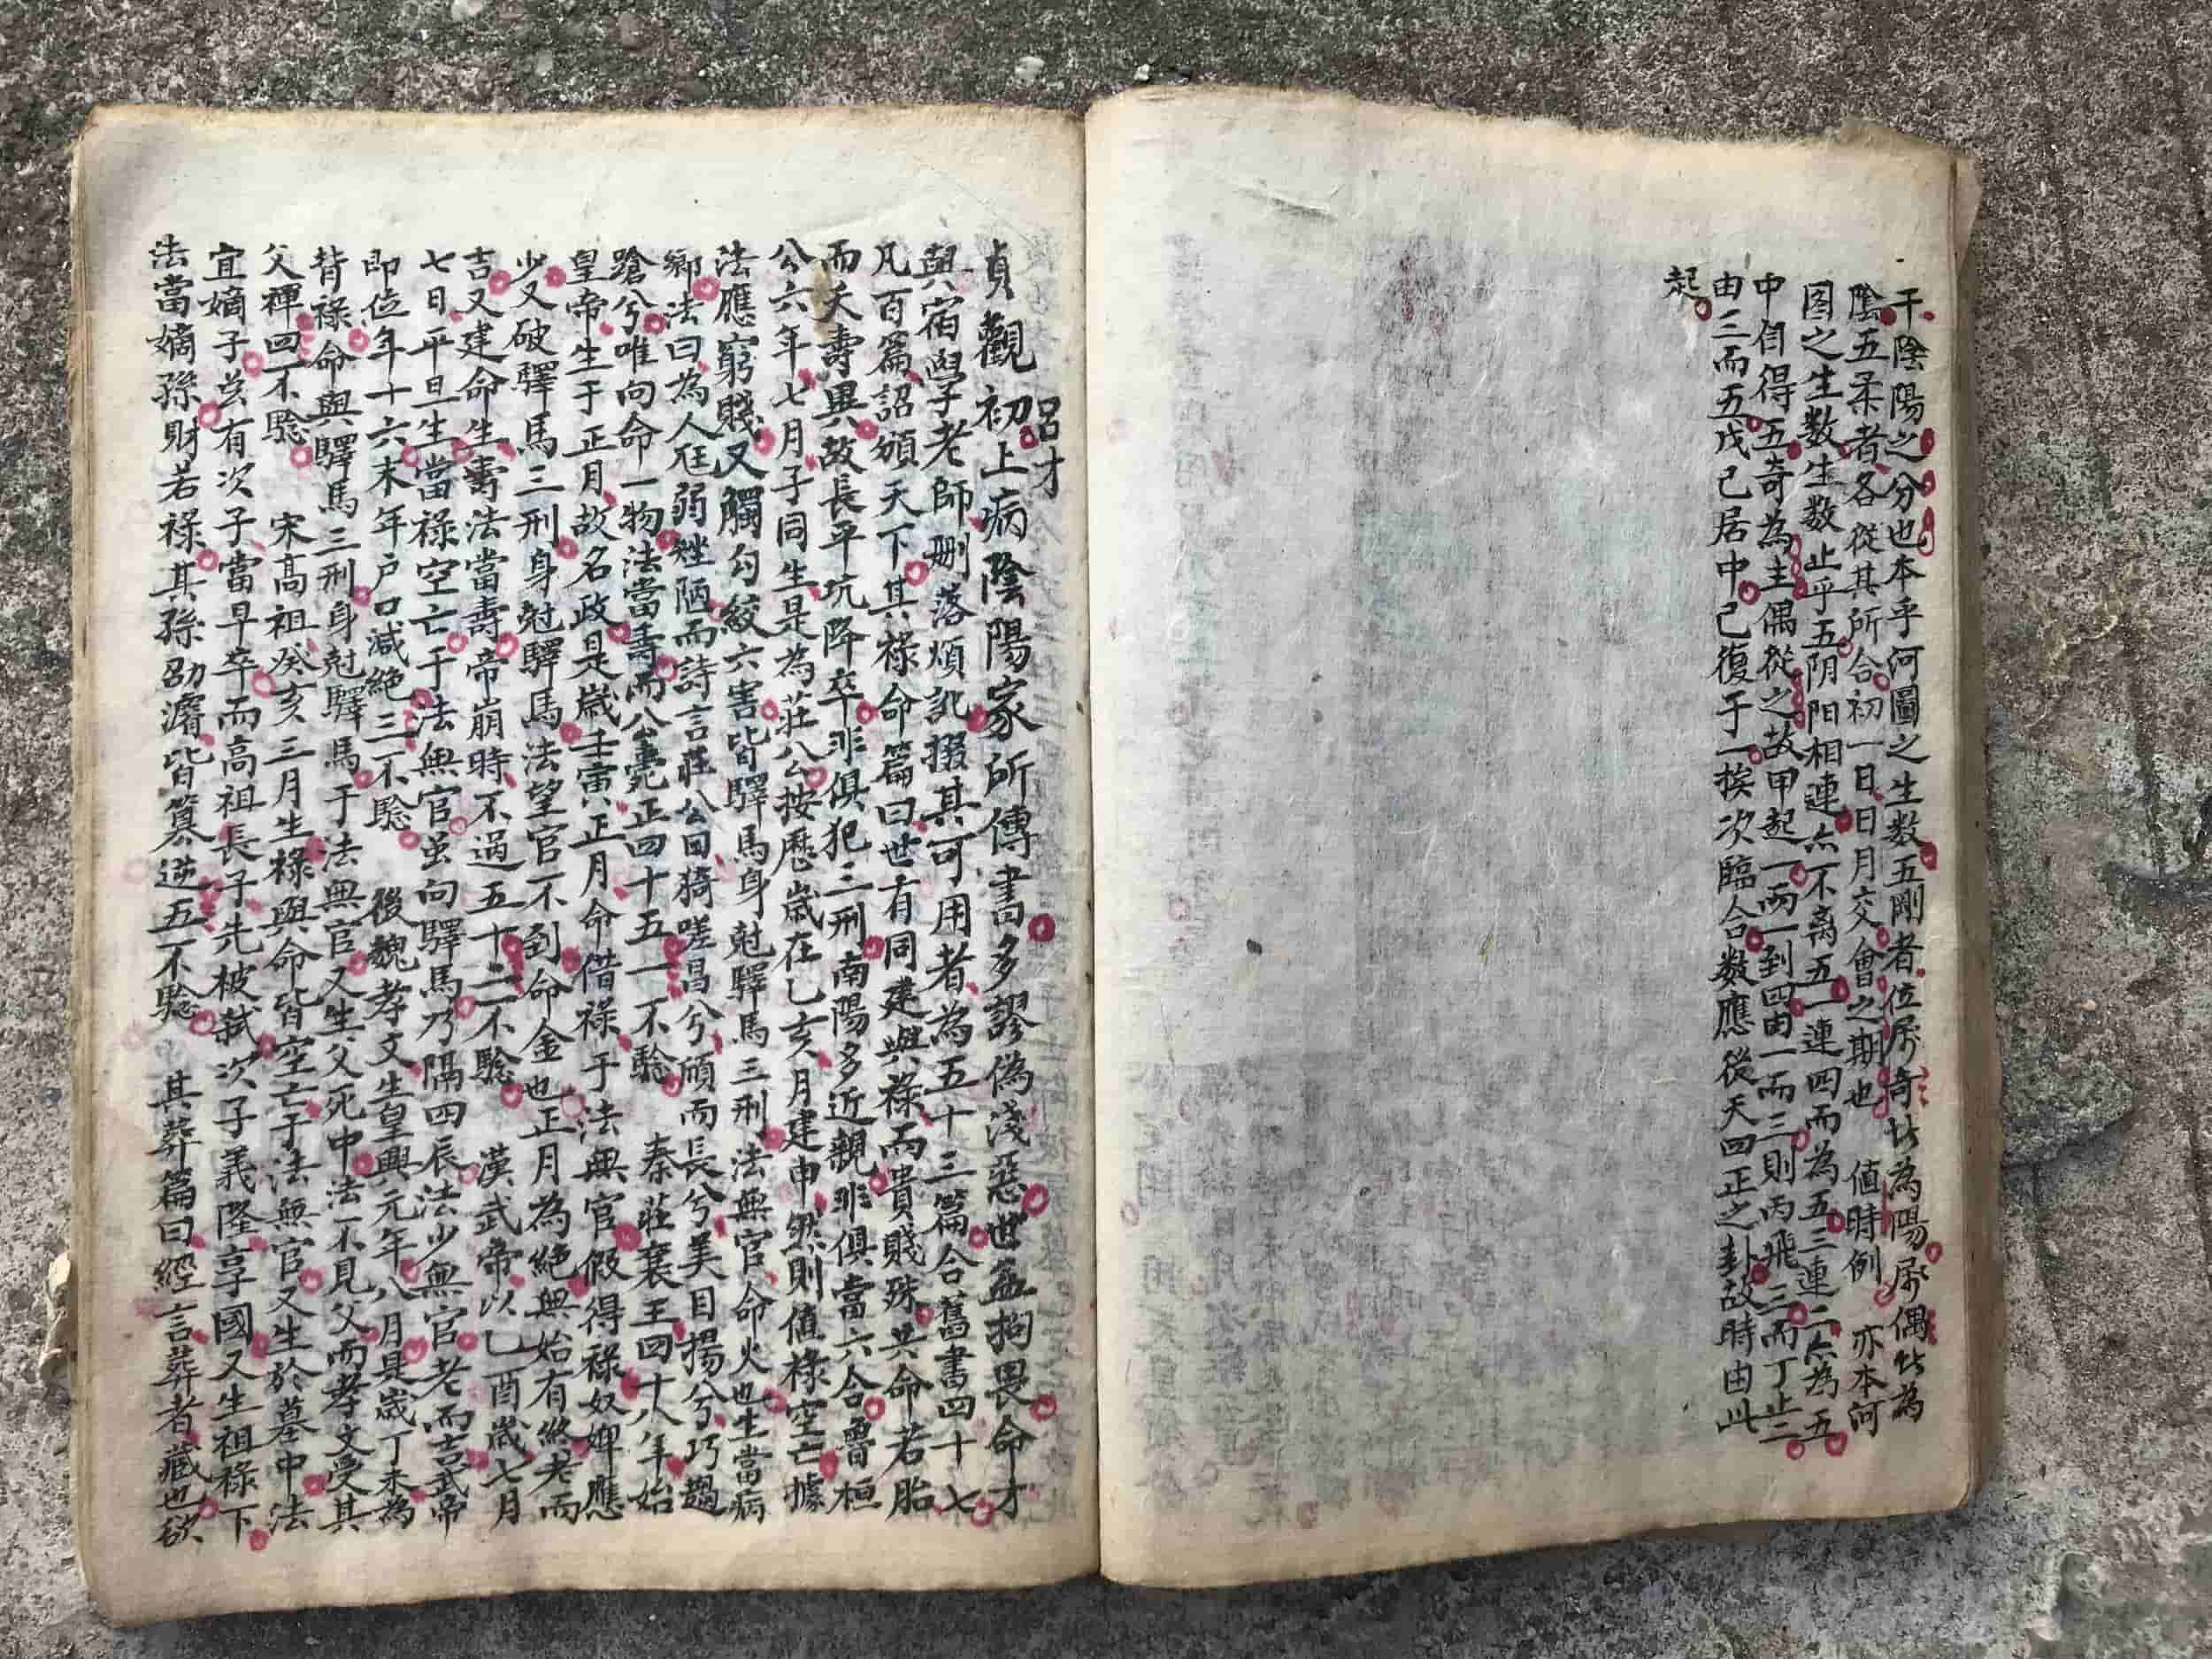 干陰陽之分也本乎何圖之生数五剛者位屬奇皆為陽屬偶皆為
陰五柔者各從其所合初一日日月交會之期也 值時例 亦本河
图之生数生数止乎五阴阳相連亦不离五一連四而為五三連二亦為五
中自得五奇為主偶從之故甲起一而一到四由一而三則丙飛三而丁止二
由三而五戊己居中己復于一挨次臨合数應後天四正之卦故時由此
起
呂才
貞觀初上病陰陽家所傳書多謬偽淺惡世益拘畏命才
與宿學老師删落煩訛掇其可用者為五十三篇合舊書四十七
凡百篇詔頒天下其祿命篇曰世有同建與祿而貴賤殊共命若胎
而夭壽異故長平坑降卒非俱犯三刑南陽多近親非俱當六合魯桓
公六年七月子同生是為莊公按歷歲在乙亥月建申然則值祿空亡據
法應窮賤又觸勾絞六害皆驛馬身尅驛馬三刑法無官命火也生當病
鄉法曰為人尫弱矬陋而詩言莊公曰猗嗟昌兮頎而長兮美目揚兮巧趨
蹌兮唯向命一物法當壽而公薨正四十五一不騐 秦莊襄王四十八年始
皇帝生于正月故名政是歲壬寅正月命借祿于法無官假得祿奴婢應
少又破驛馬三刑身尅驛馬法望官不到命金也正月為絕無始有終老而
吉又建命生壽法當壽帝崩時不過五十二不騐 漢武帝以乙酉歲七月
七日平旦生當祿空亡于法無官虽向驛馬乃隔四辰法少無官老而吉武帝
即位年十六末年户口减絕三不騐 後魏孝文生皇興元年八月是歲丁未為
背祿命與驛馬三刑身尅驛馬于法無官又生父死中法不見父而孝文受其
父禪四不騐 宋高祖癸亥三月生祿與命皆空亡于法無官又生於墓中法
宜嫡子虽有次子當早卒而高祖長子先被弑次子義隆享國又生祖祿下
法當嫡孫財若祿其孫劭濬皆篡逆五不騐 其葬篇曰經言葬者藏也欲